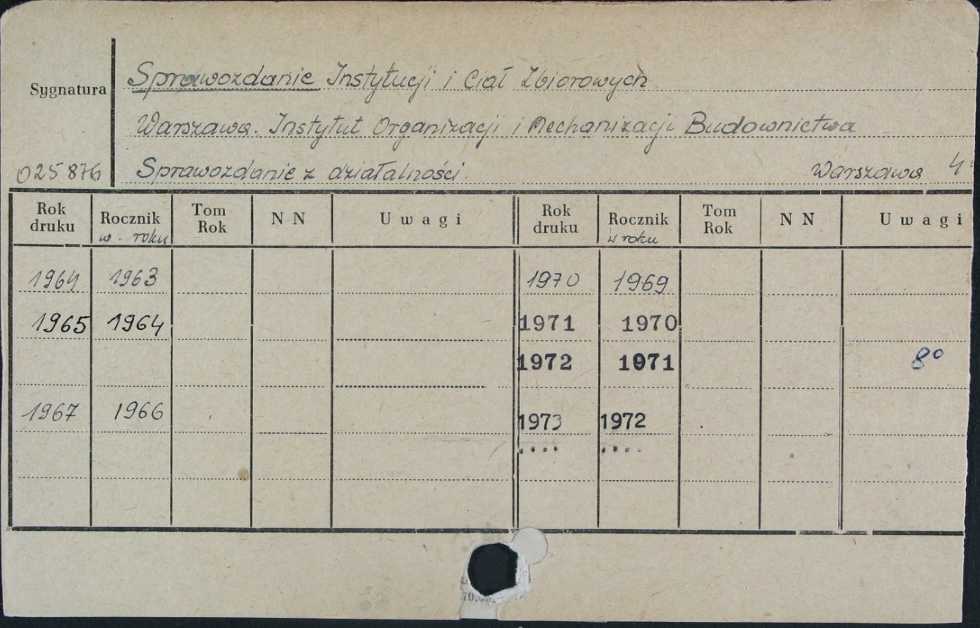 Sygnatura
Sprawozdanie Instytucji i Ciał Zbiorowych
Warszawa. Instytut Organizacji i Mechanizacji Budownictwa
025876 Sprawozdanie z działalności. Warszawa 4°
Rok druku Rocznik w. roku Tom Rok NN Uwagi Rok druku Rocznik w roku Tom Rok NN Uwagi
1964 1963 1970 1969
1965 1964 1971 1970
1972 1971 8°
1967 1966 1973 1972